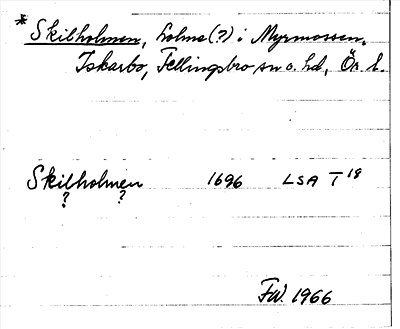 * Skilholmen, holme(?) i Myrmossen,
Iskarbo, Fellingsbro sn o. hd, Ör. l.
Skilholmen 1696 LSA T 18
? ?
FW. 1966